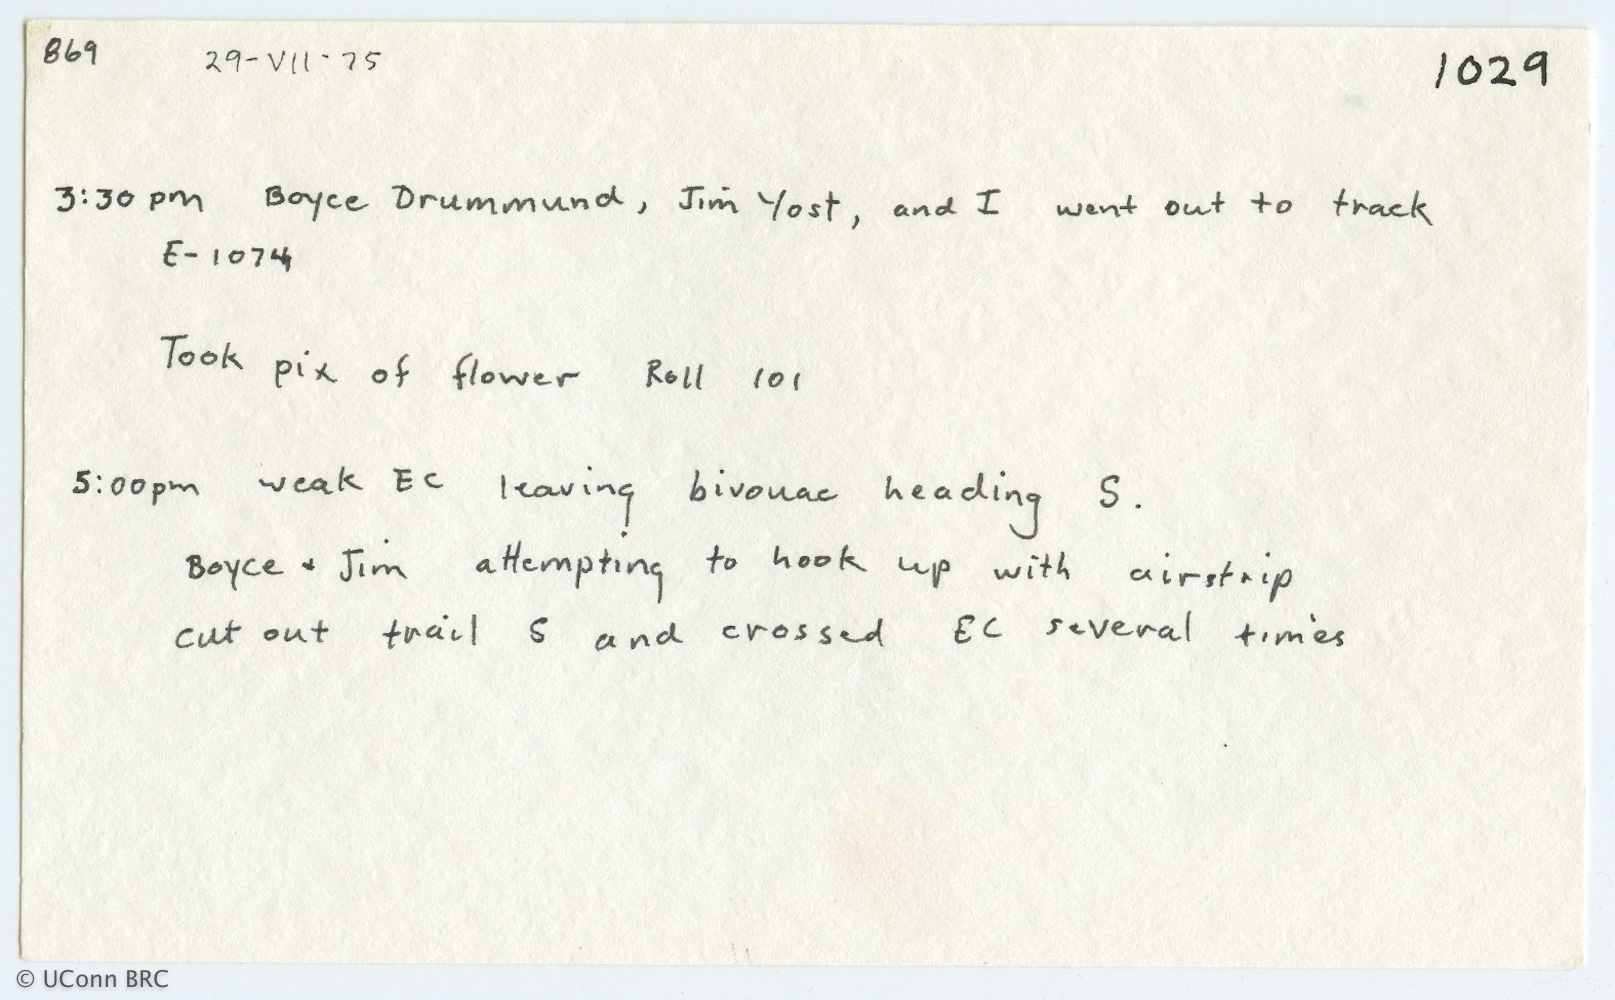 869 29-VII-75 1029
3:30 pm Boyce Drummund, Jim Yost, and I went out to track
E-1074
Took pix of flower Roll 101
5:00pm weak EC leaving bivouac heading S.
Boyce + Jim attempting to hook up with airstrip
cut out trail S and crossed EC several times
© UConn BRC